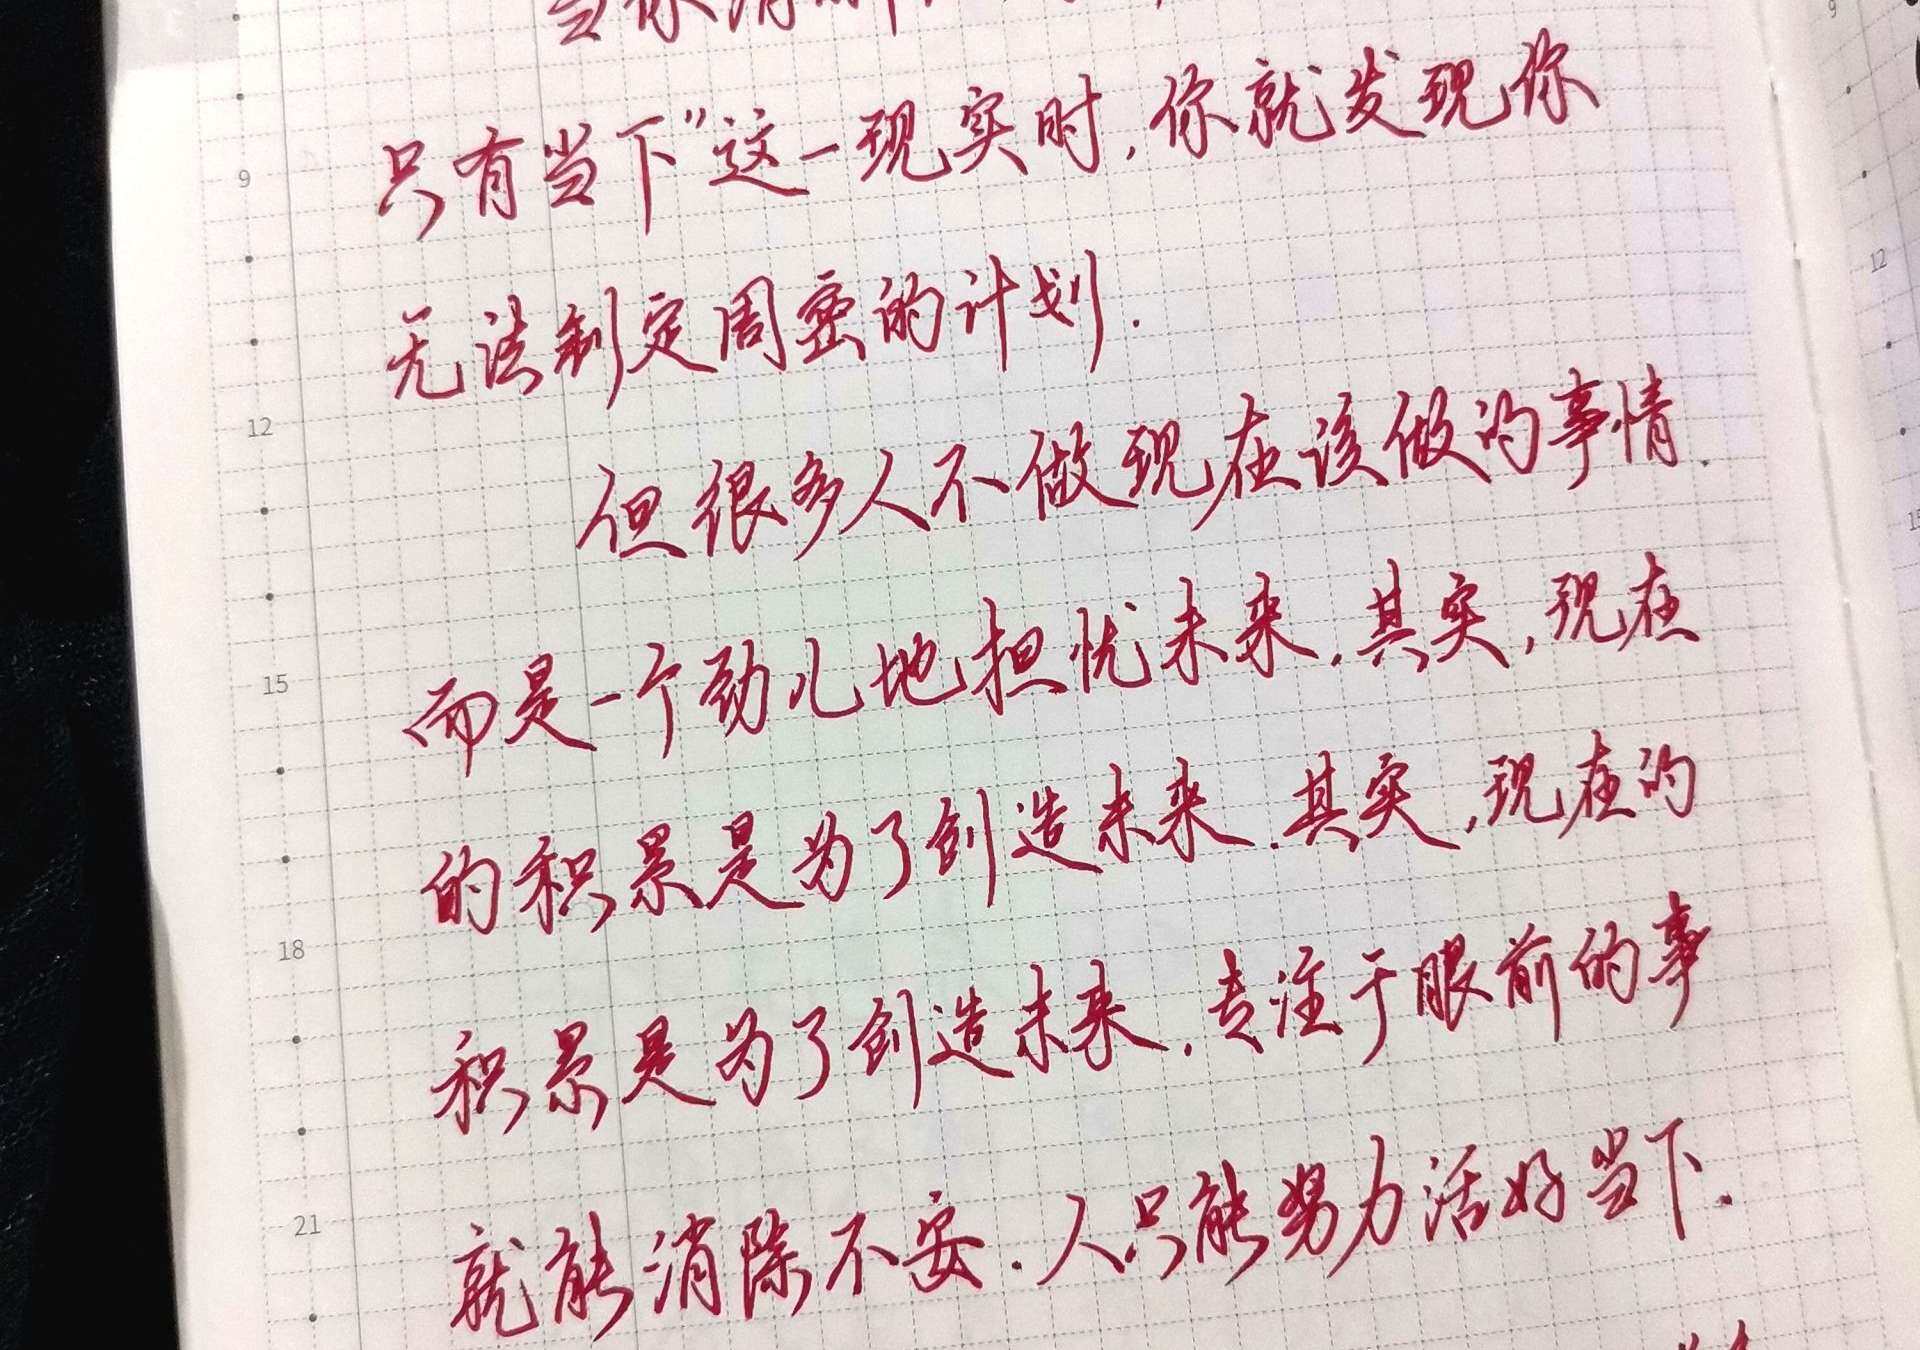 当你清
只有当下”这一现实时,你就发现你
无法制定周密的计划.
但很多人不做现在该做的事情.
而是一个劲儿地担忧未来.其实,现在
的积累是为了创造未来.其实,现在的
积累是为了创造未来,专注于眼前的事
就能消除不安.人只能努力活好当下.
9
12
15
18
21
9
12